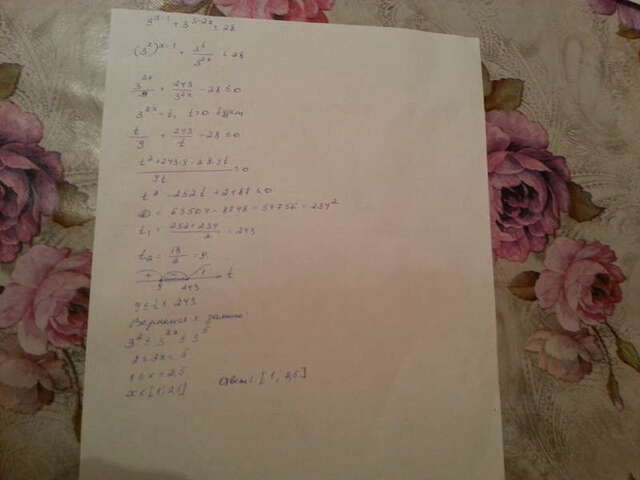 9^(x-1) + 3^(5-2x) ≤ 28
(3²)^(x-1) + 3⁵/3^(2x) ≤ 28
3^(2x)/9 + 243/3^(2x) - 28 ≤ 0
3^(2x) = t, t>0
t/9 + 243/t - 28 ≤ 0
(t² + 243·9 - 28·9t)/9t ≤ 0
t² - 252t + 2187 ≤ 0
D = 63504 - 8748 = 54756 = 234²
t₁ = (252+234)/2 = 243
t₂ = 18/2 = 9
+ - + t
9 243
9 ≤ t ≤ 243
Вернемся к замене
3² ≤ 3^(2x) ≤ 3⁵
2 ≤ 2x ≤ 5
1 ≤ x ≤ 2,5
x ∈ [1; 2,5] Ответ: [1; 2,5]